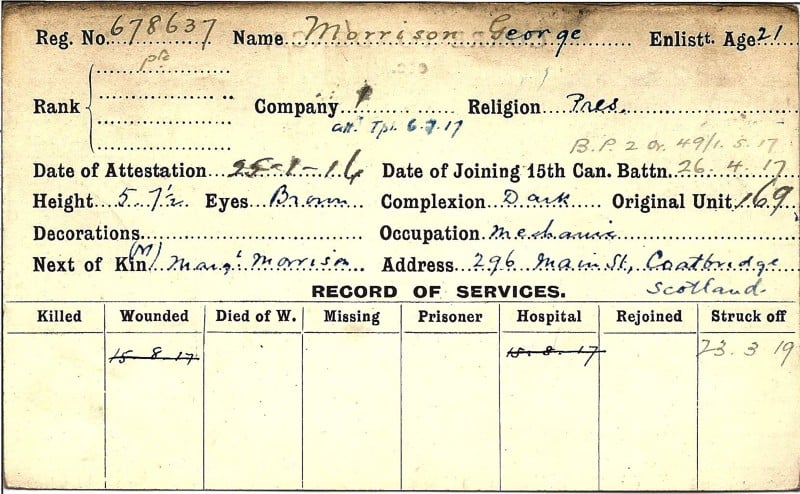 Reg. No. 678637 Name Morrison George Enlistt. Age 21
pte
Rank Company 1 Religion Pres.
att. Tpt. 6.7.17
B.P. 2 Or. 49/1.5.17
Date of Attestation 25-1-16 Date of Joining 15th Can. Battn. 26.4.17
Height 5.7½ Eyes Brown Complexion Dark Original Unit 169
Decorations Occupation Mechanic
Next of Kin (M) Margt Morrison Address 296 Main St, Coatbridge
Scotland.
RECORD OF SERVICES.
Killed Wounded Died of W. Missing Prisoner Hospital Rejoined Struck off
15-8-17 15.8.17 23.3 19